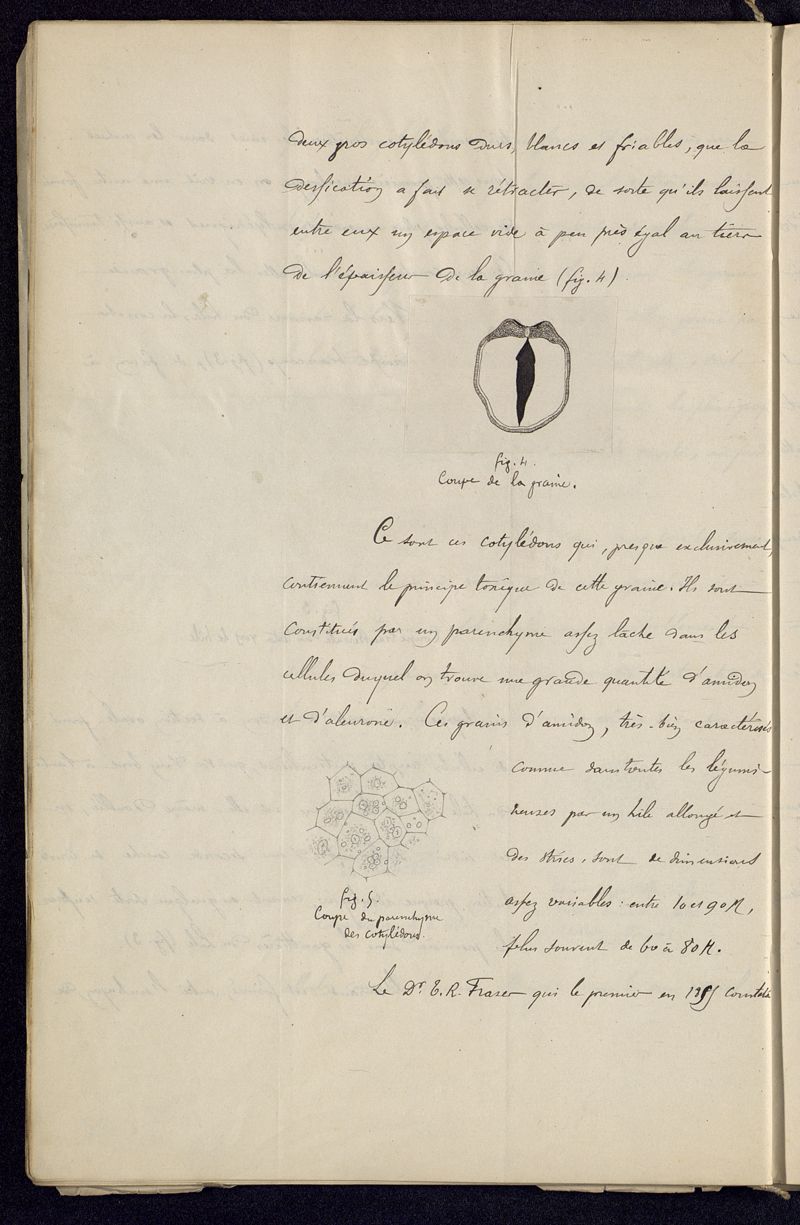 deux gros cotylédons durs, blancs et friables, que la
dessication a fait se rétracter, de sorte qu'ils laissent
entre eux un espace vide à peu près égal au tiers
de l'épaisseur de la graine (fig. 4).
fig. 4.
Coupe de la graine.
Ce sont ces cotylédons qui, presque exclusivement,
contiennent le principe toxique de cette graine. Ils sont
constitués par un parenchyme assez lâche dans les
cellules duquel on trouve une grande quantité d'amidon
et d'aleurone. Ces grains d'amidon, très-bien caractérisés
comme dans toutes les légumi-
neuses par un hile allongé et
des stries, sont de dimensions
assez variables: entre 10 et 90 μ,
plus souvent de 60 à 80 μ.
fig. 5.
Coupe du parenchyme
des cotylédons.
Le Dr. T. R. Fraser qui le premier en constata